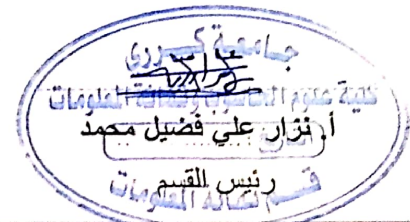 جامعة كرري
كلية علوم الحاسوب وتقانة المعلومات
أ. نزار علي فضيل محمد
رئيس القسم
قسم تقانة المعلومات